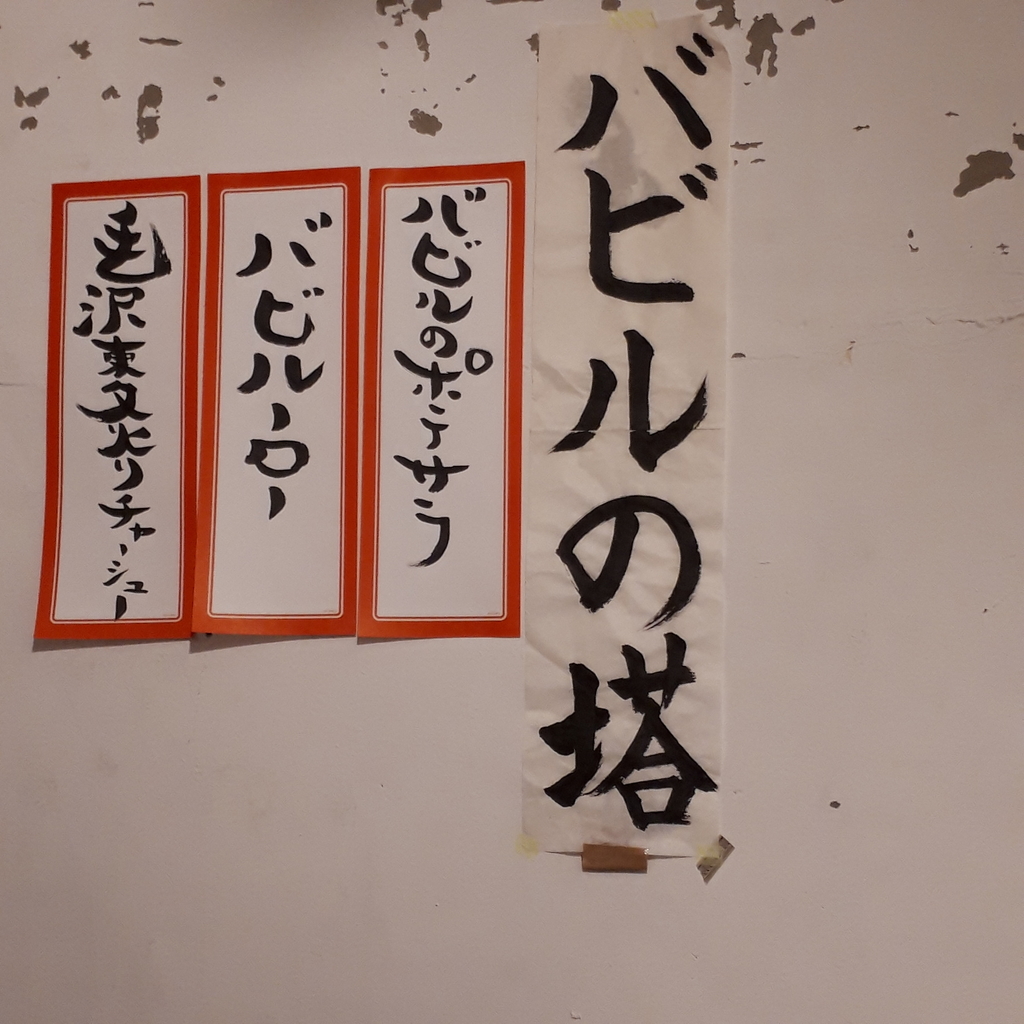 バビルの塔
バビルのポテサラ
バビルーロー
毛沢東炙りチャーシュー